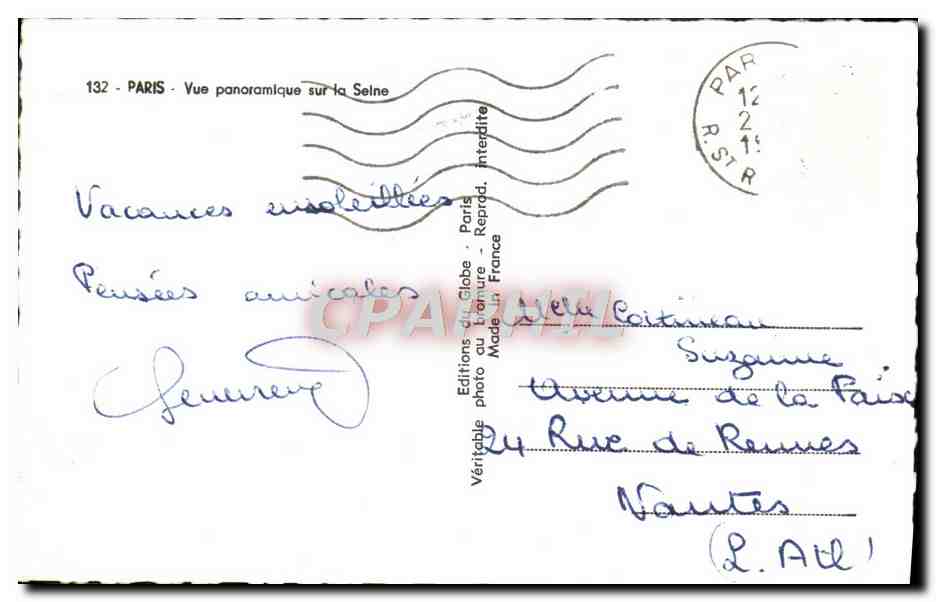 132 - PARIS - Vue panoramique sur la Seine
Vacances ensoleillées
Pensées amicales
Editions du Globe - Paris
Véritable photo au bromure - Reprod. interdite
Made in France
CPAPHIL
PAR
12
2
19
R. ST R
Melle
Suzanne
Avenue de la Paix
24 Rue de Rennes
Nantes
(L. Atl)